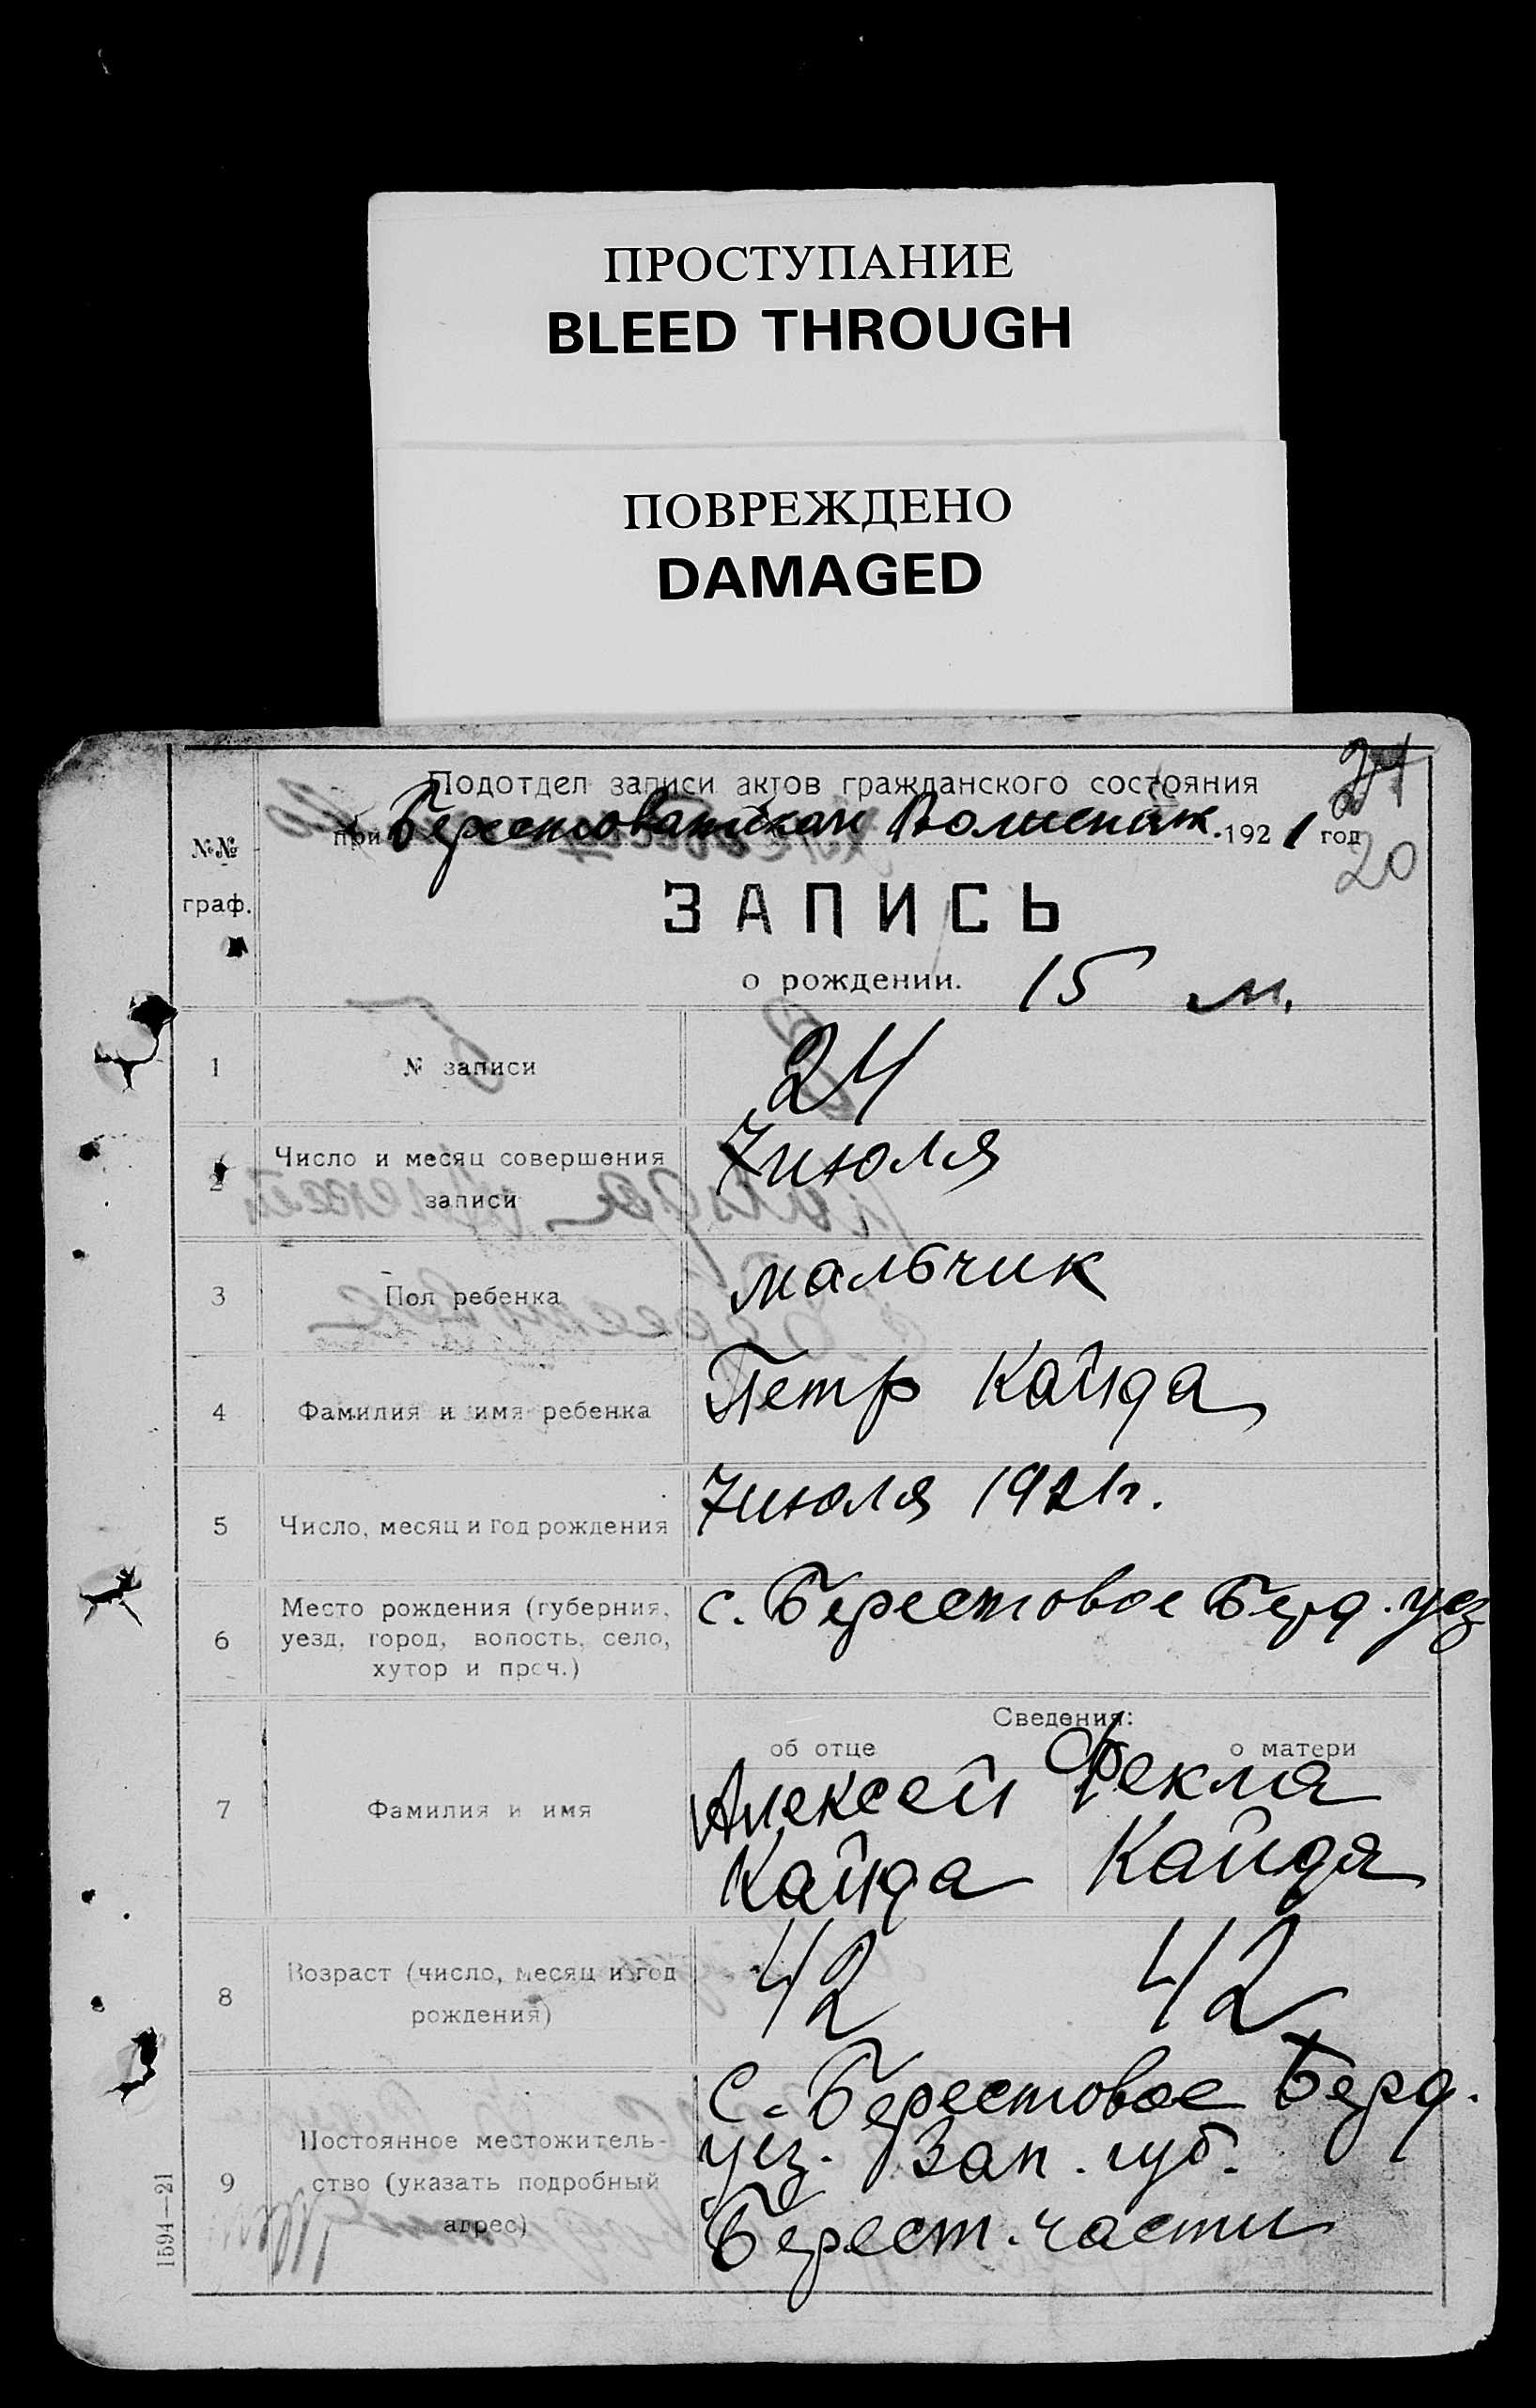 ПРОСТУПАНИЕ
BLEED THROUGH
ПОВРЕЖДЕНО
DAMAGED
Подотдел записи актов гражданского состояния
при 1921 год
20
№№
граф.
ЗАПИСЬ
о рождении. 15 м.
1 № записи 24
2 Число и месяц совершения записи 7 июля
3 Пол ребенка мальчик
4 Фамилия и имя ребенка Петр Кайда
5 Число, месяц и год рождения 7 июля 1921 г.
6 Место рождения (губерния,
уезд, город, волость, село,
хутор и проч.)
с. Берестовое Берд. уез
Сведения:
об отце о матери
7 Фамилия и имя
Алексей Фекла
Кайда Кайда
8 Возраст (число, месяц и год
рождения)
42 42
9 Постоянное местожитель-
ство (указать подробный
адрес)
С. Берестовое Берд.
уез. Зап. губ.
Берест. части
1594—21